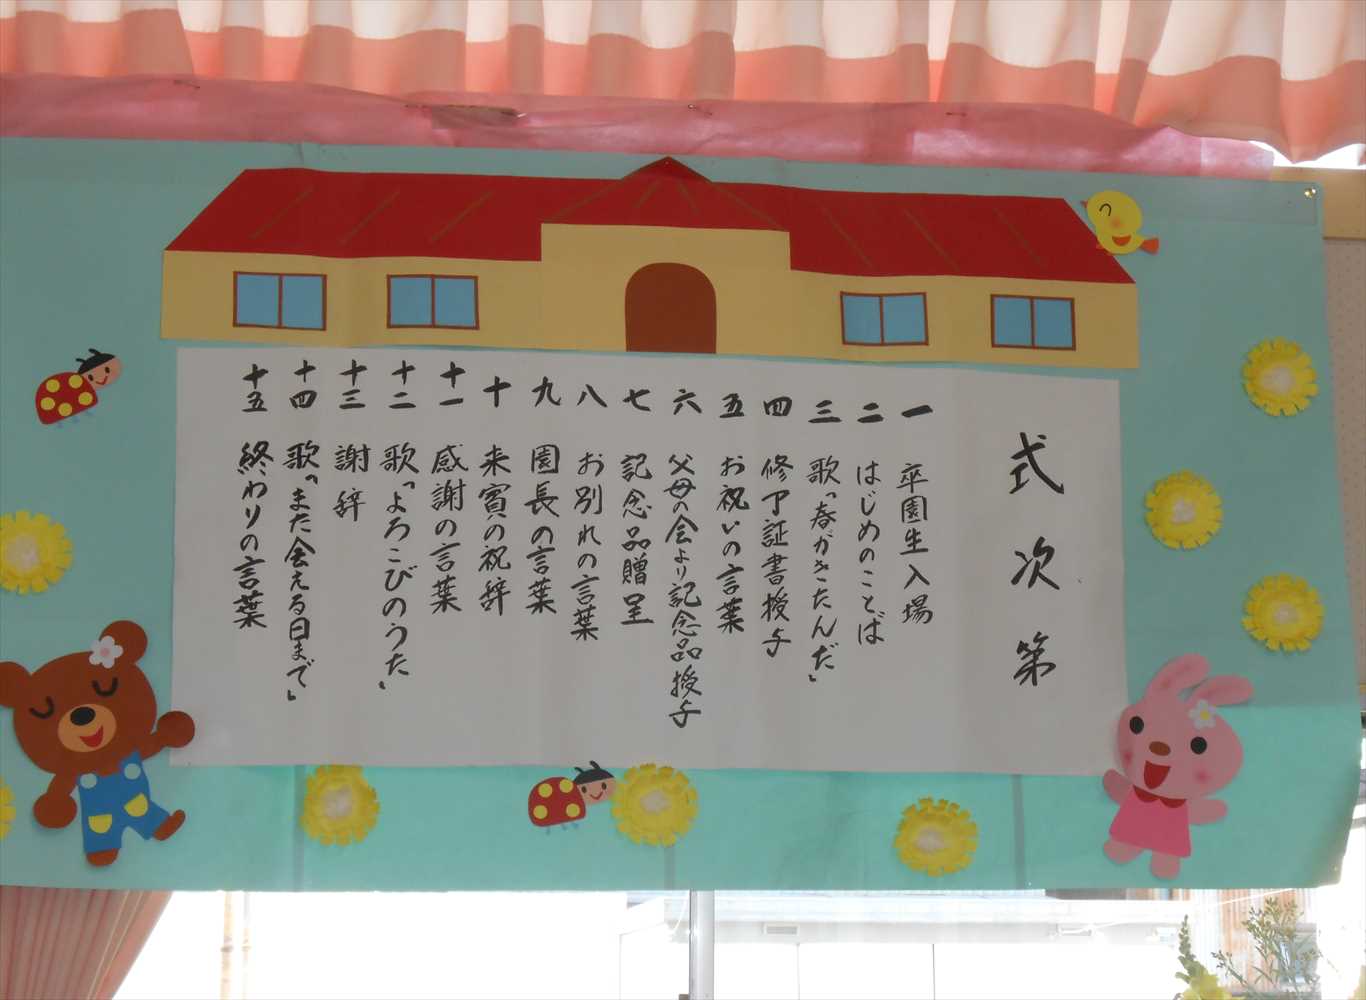 式次第
一 卒園生入場
二 はじめのことば
三 歌「春がきたんだ」
四 修了証書授与
五 お祝いの言葉
六 父母の会より記念品授与
七 記念品贈呈
八 お別れの言葉
九 園長の言葉
十 来賓の祝辞
十一 感謝の言葉
十二 歌「よろこびのうた」
十三 謝辞
十四 歌「また会える日まで」
十五 終わりの言葉